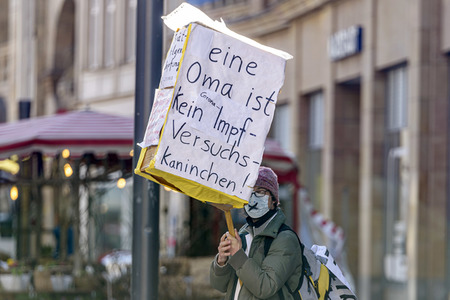 eine
Oma ist
Corona-
Kein Impf-
Versuchs-
Kaninchen!